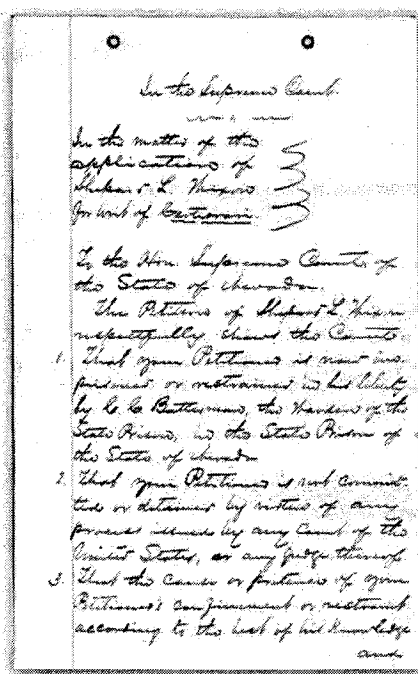 In the Supreme Court.
In the matter of the
application of
L. Nixon
for writ of Certiorari
To the Hon. Supreme Court of
the State of Nevada.
The Petition of L Nixon
respectfully shows the Court.
1. That your Petitioner is now im-
prisoned or restrained in his liberty
by C. C. Batterman, the Warden of the
State Prison, in the State Prison of
the State of Nevada
2. That your Petitioner is not commit-
ted or detained by virtue of any
process issued by any Court of the
United States, or any Judge thereof
3. That the cause or pretence of your
Petitioner's confinement or restraint
according to the best of his knowledge
and